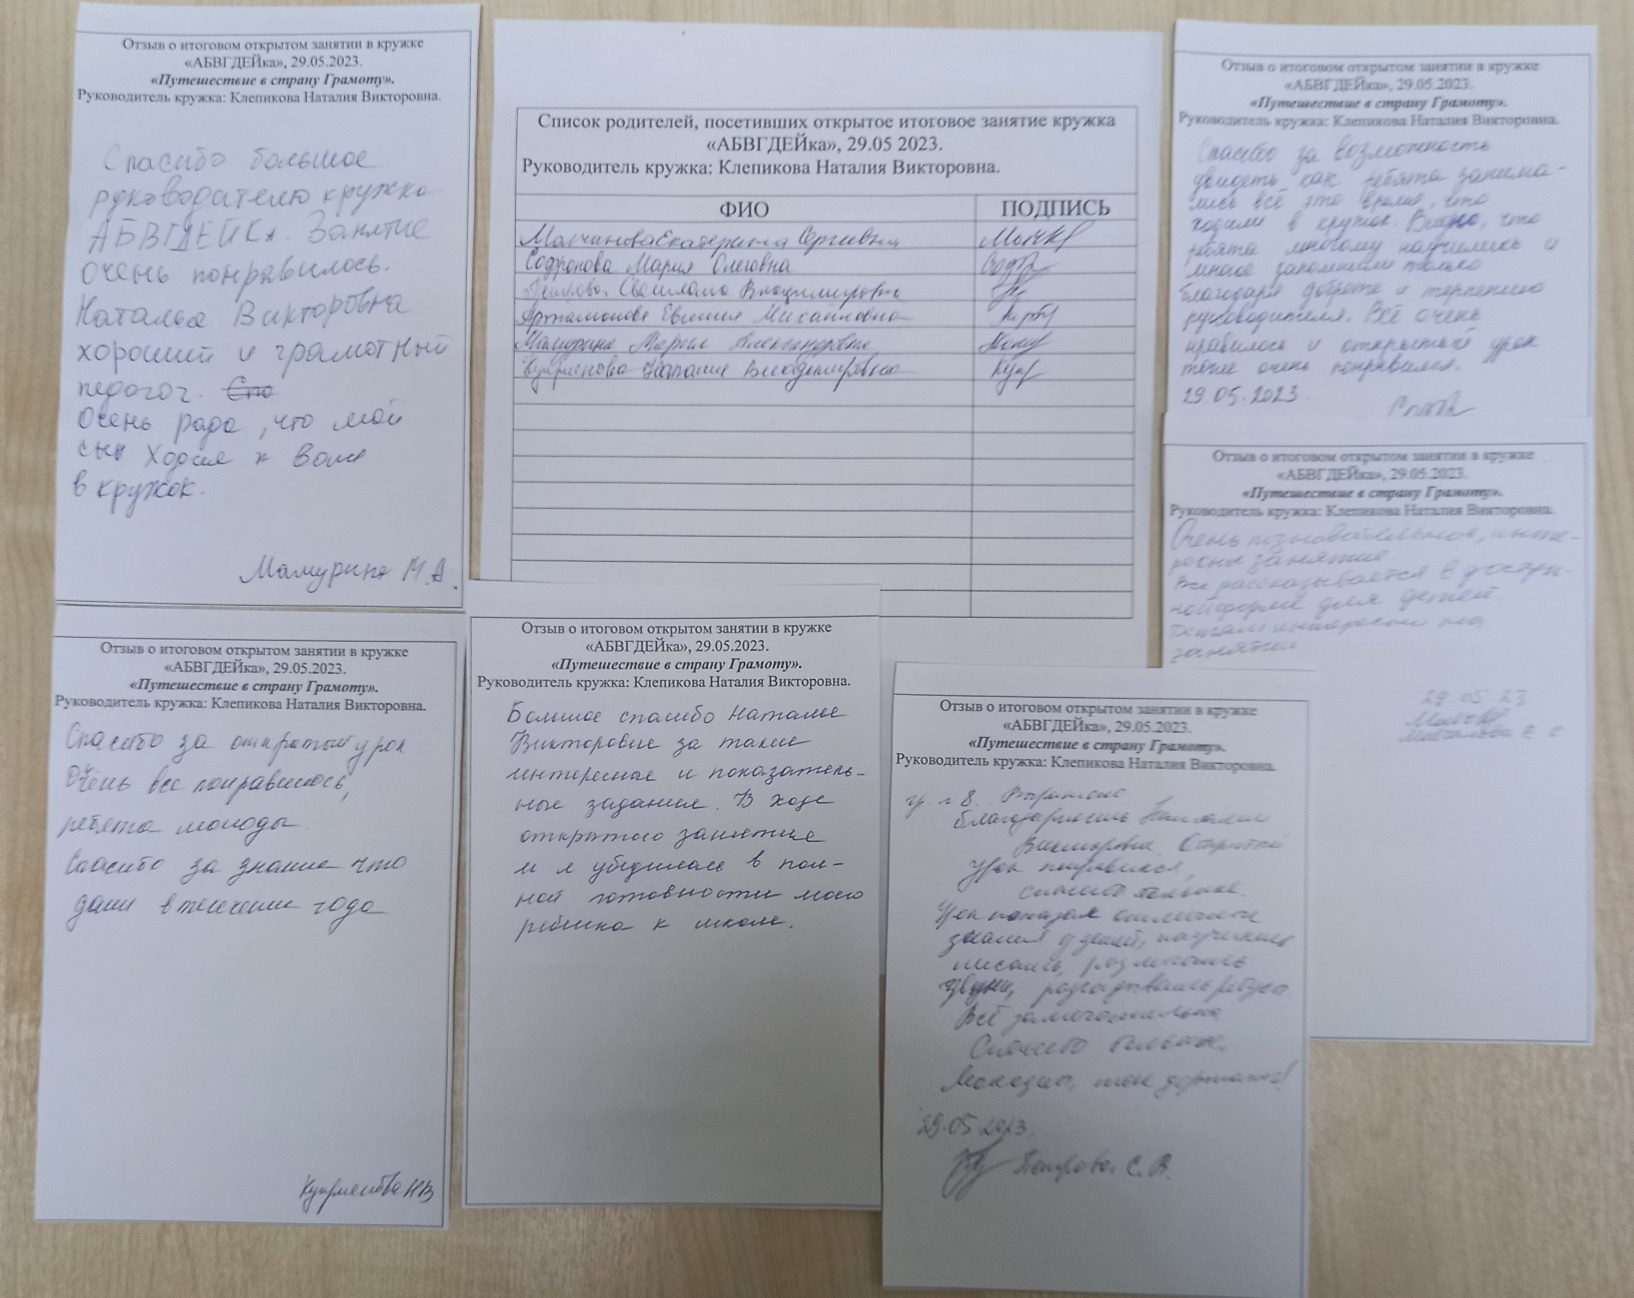 Отзыв о итоговом открытом занятии в кружке
«АБВГДЕЙка», 29.05.2023.
«Путешествие в страну Грамоту».
Руководитель кружка: Клепикова Наталия Викторовна.
Спасибо большое
руководателю кружка
АБВГДЕЙКа. Занятие
очень понравилось.
Наталья Викторовна
хороший и грамотный
педогог. Спа
Очень рада, что мой
сын ходил к Вам
в кружок.
Мамурина М.А.
Список родителей, посетивших открытое итоговое занятие кружка
«АБВГДЕЙка», 29.05 2023.
Руководитель кружка: Клепикова Наталия Викторовна.
ФИО ПОДПИСЬ
Екатерина Сергеевна
Мария Олеговна
Светлана Владимировна
Артамонова Евгения Михайловна
Мамурина Мария Александровна
Наталия Владимировна
Отзыв о итоговом открытом занятии в кружке
«АБВГДЕЙка», 29.05.2023.
«Путешествие в страну Грамоту».
Руководитель кружка: Клепикова Наталия Викторовна.
Спасибо за возможность
увидеть как ребята занима-
лись всё это время, что
ходили в кружок. Видно, что
ребята многому научились и
многое запомнили только
благодаря доброте и терпению
руководителя. Всё очень
нравилось и открытый урок
тоже очень понравился.
29.05.2023
Отзыв о итоговом открытом занятии в кружке
«АБВГДЕЙка», 29.05.2023.
«Путешествие в страну Грамоту».
Руководитель кружка: Клепикова Наталия Викторовна.
Очень познавательное, инте-
ресны занятие.
Все рассказывается в доступ-
ной форме для детей.
Детям интересно на
занятии
29.05.23
Отзыв о итоговом открытом занятии в кружке
«АБВГДЕЙка», 29.05.2023.
«Путешествие в страну Грамоту».
Руководитель кружка: Клепикова Наталия Викторовна.
Спасибо за открытый урок
Очень все понравилось,
ребята молоды.
Спасибо за знание что
дали в течении года
Отзыв о итоговом открытом занятии в кружке
«АБВГДЕЙка», 29.05.2023.
«Путешествие в страну Грамоту».
Руководитель кружка: Клепикова Наталия Викторовна.
Большое спасибо Наталье
Викторовне за такие
интересные и показатель-
ные задания. В ходе
открытого занятие
и я убедилась в пол-
ной готовности моего
ребенка к школе.
Отзыв о итоговом открытом занятии в кружке
«АБВГДЕЙка», 29.05.2023.
«Путешествие в страну Грамоту».
Руководитель кружка: Клепикова Наталия Викторовна.
гр. № 8.
благодарность Наталии
Викторовне. Открытый
урок понравился,
спасибо большое.
Урок показал отличные
знания у детей, научились
писать, различать
звуки, разгадывать ребусы.
Всё замечательно
Спасибо большое.
Молодцы, так держать!
29.05.2023.
С.В.